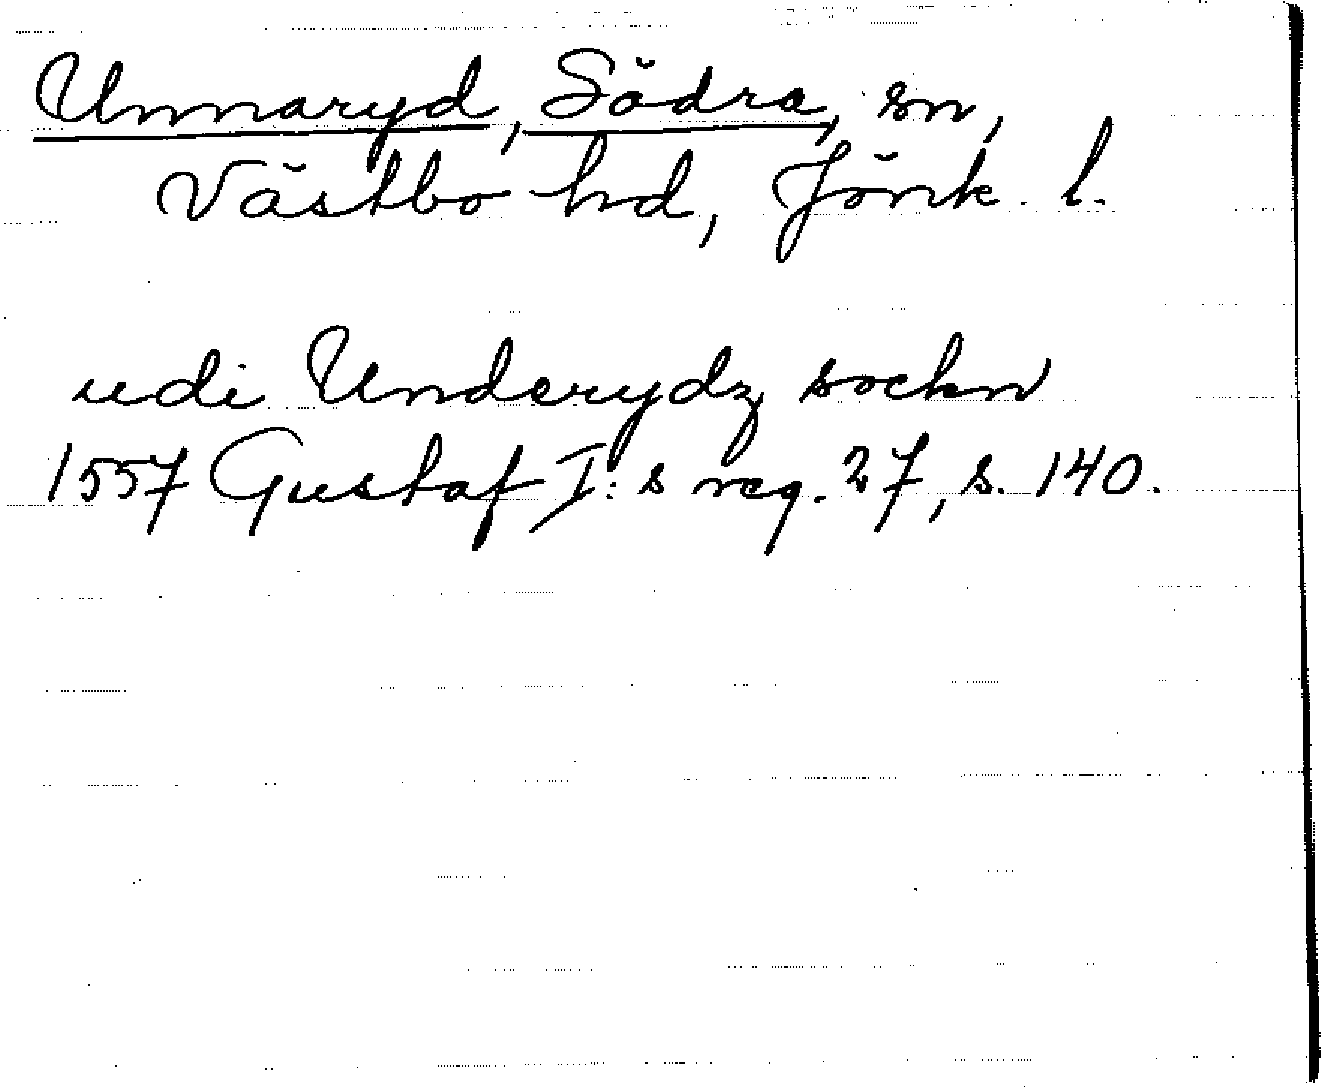 Unnaryd, Södra, sn,
Västbo hd, Jönk. l.
udi Underydz sockn
1557 Gustaf I:s reg. 27, s. 140.